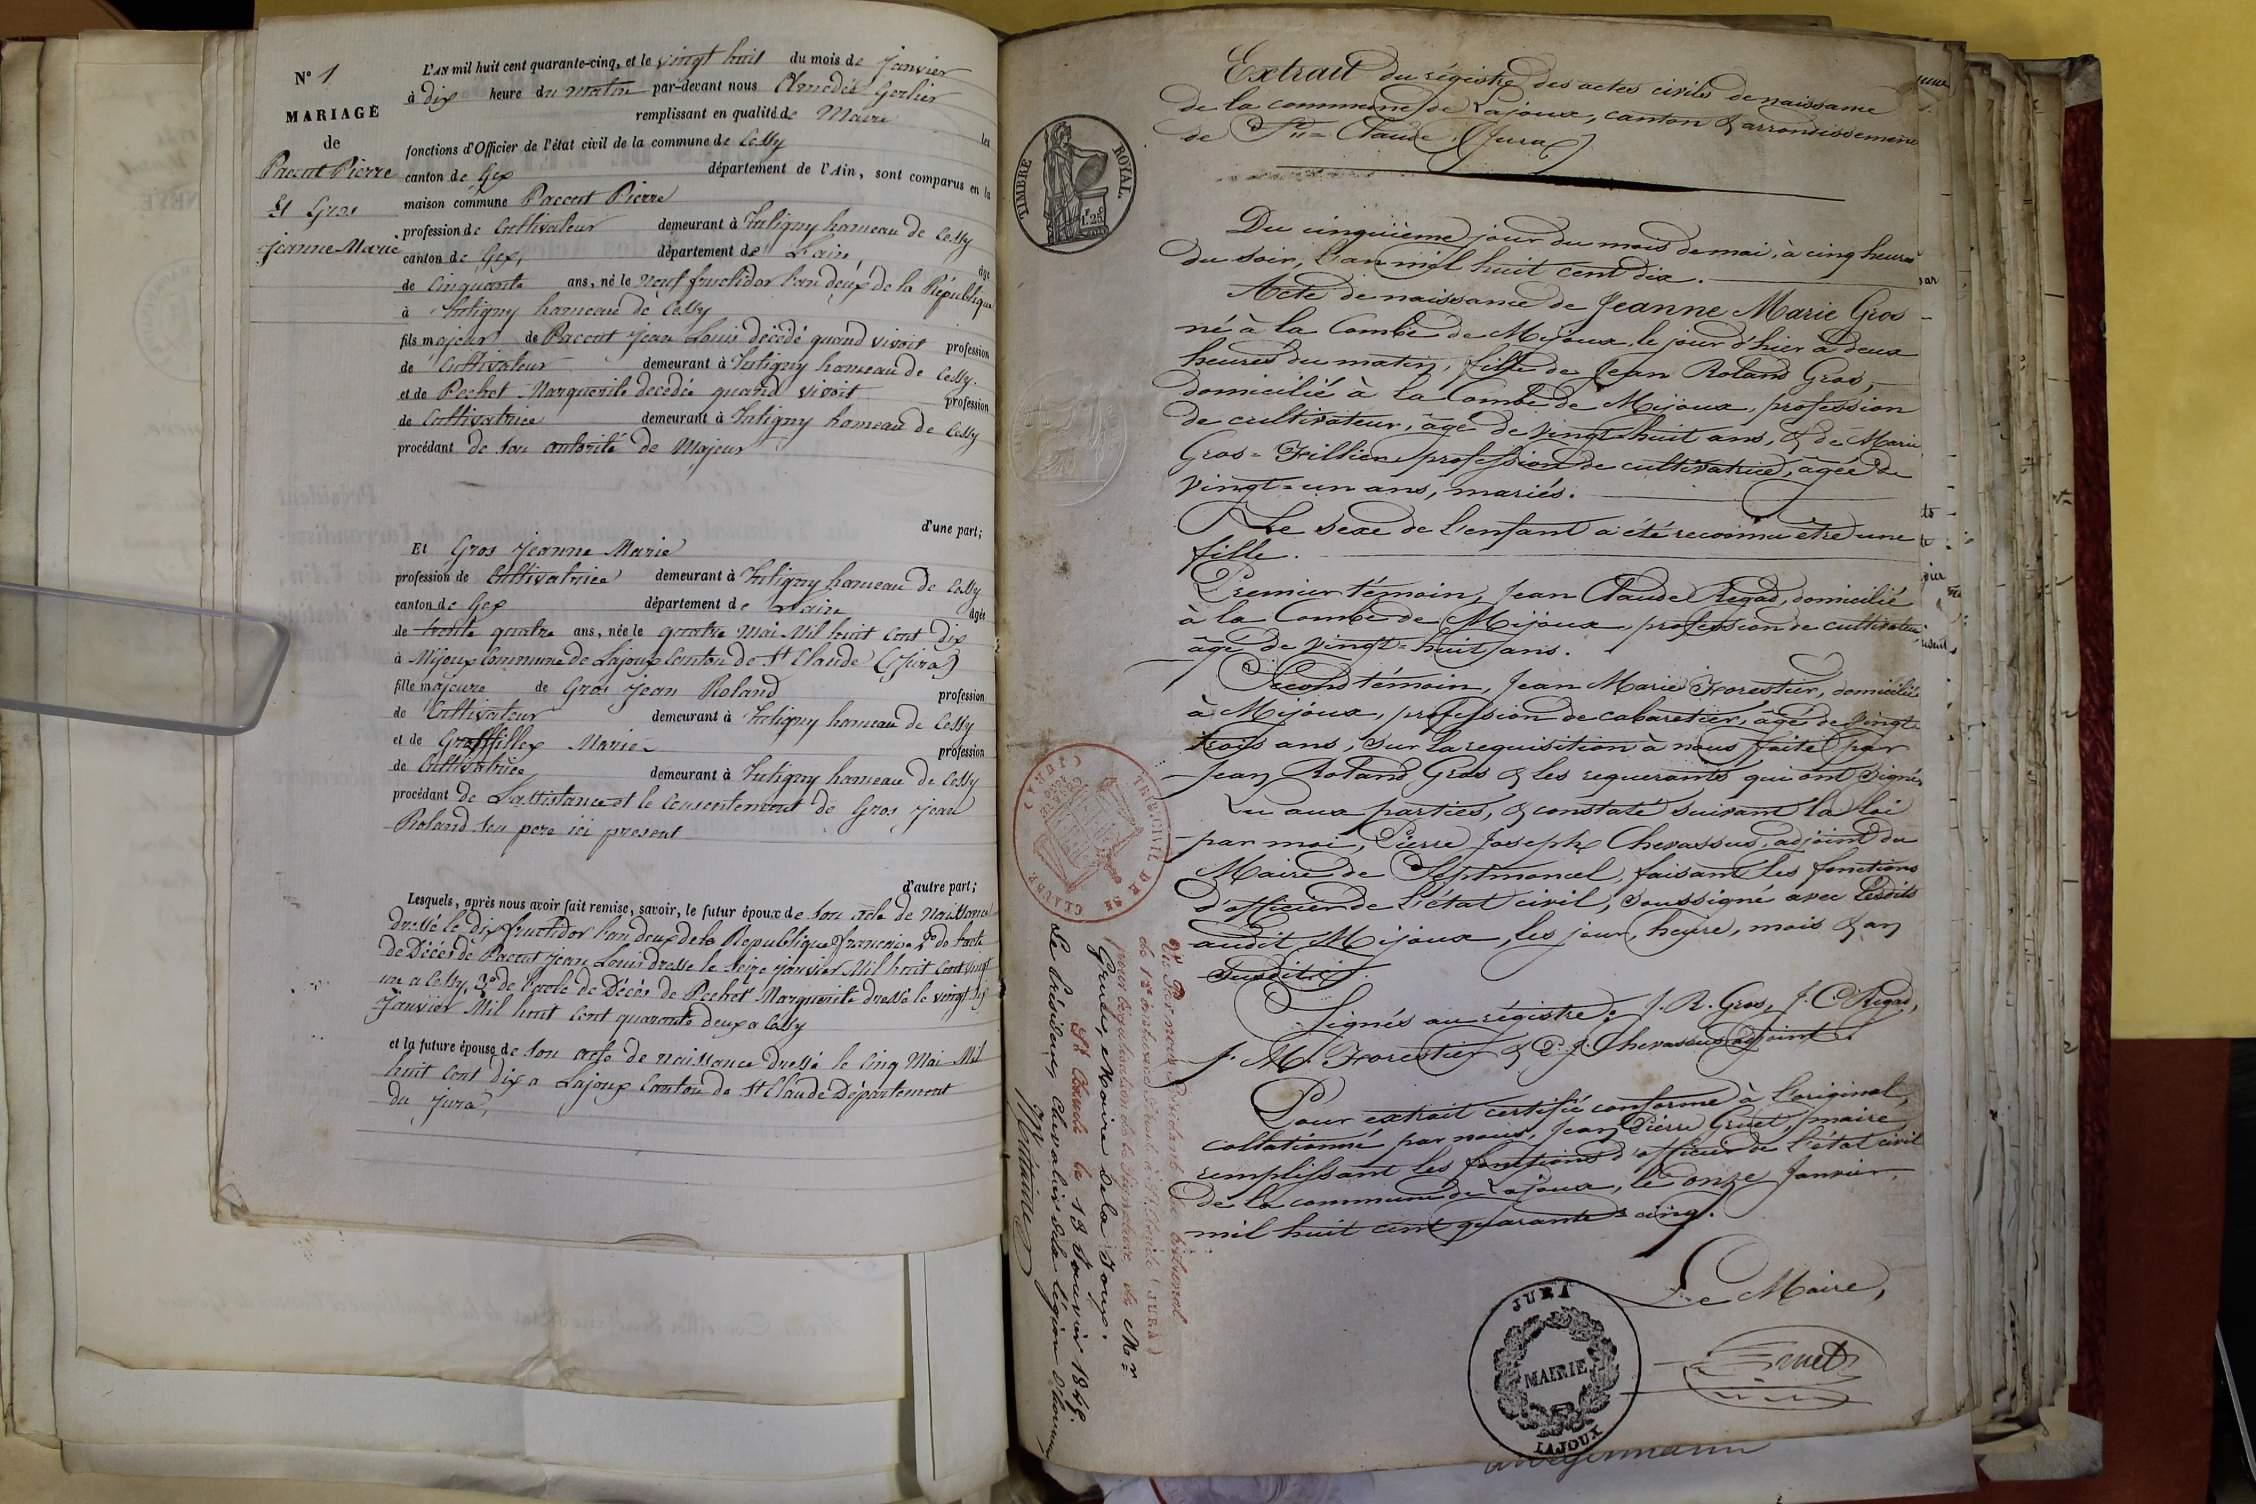 N° 1
MARIAGE
de
Paccat Pierre
Et Gros
Jeanne Marie
L'AN mil huit cent quarante-cinq, et le vingt huit du mois de Janvier
à dix heure du matin par-devant nous Amedée Gerlier
remplissant en qualité de Maire les
fonctions d'Officier de l'état civil de la commune de Cessy
canton de Gex département de l'Ain, sont comparus en la
maison commune Paccat Pierre
profession de Cultivateur demeurant à Tutigny hameau de Cessy
canton de Gex, département de L'ain, âgé
de Cinquante ans, né le neuf fructidor l'an deux de la République
à Tutigny hameau de Cessy
fils majeur de Paccat Jean Louis décédé quand vivoit profession
de Cultivateur demeurant à Tutigny hameau de Cessy.
et de Pechet Marguerite decedée quand vivoit profession
de Cultivatrice demeurant à Tutigny hameau de Cessy
procédant de son autorité de Majeur
d'une part;
Et Gros Jeanne Marie
profession de Cultivatrice demeurant à Tutigny hameau de Cessy
canton de Gex département de L'ain âgée
de trente quatre ans, née le quatre Mai Mil huit Cent Dix
à Mijoux Commune de Lajoux Canton de St Claude (Jura)
fille majeure de Gros Jean Roland profession
de Cultivateur demeurant à Tutigny hameau de Cessy
et de Grosfillex Marie profession
de Cultivatrice demeurant à Tutigny hameau de Cessy
procédant de L'assistance et le Consentement de Gros Jean
Roland son pere ici present
d'autre part;
Lesquels, après nous avoir fait remise, savoir, le futur époux de son acte de Naissance
dressé le dix fructidor l'an deux de la Republique francaise 2° de l'acte
de Décès de Paccat Jean Louis dressé le Seize Janvier Mil huit Cent vingt
un a Cessy, 3° de l'acte de Décès de Pechet Marguerite dressé le vingt six
Janvier Mil huit Cent quarante deux a Cessy
et la future épouse de son acte de naissance dressé le Cinq Mai Mil
huit Cent Dix a Lajoux Canton de St Claude Département
du Jura,
Extrait du régistre des actes civils de naissance
de la commune de Lajoux, canton & arrondissement
de St= Claude, (Jura)
TIMBRE ROYAL
1.25
Du cinquième jour du mois de mai, à cinq heures
du soir, l'an mil huit cent dix.
Acte de naissance de Jeanne Marie Gros
né à la Combe de Mijoux, le jour d'hier à deux
heures du matin, fille de Jean Roland Gros,
domicilié à la Combe de Mijoux, profession
de cultivateur, âgé de vingt-huit ans, & de Marie
Gros=Fillier profession de cultivatrice, âgée de
vingt=un ans, mariés.
Le sexe de l'enfant a été reconnu être une
fille.
Premier témoin, Jean Claude Regad, domicilié
à la Combe de Mijoux, profession de cultivateur
âgé de vingt=huit ans.
Second témoin, Jean Marie Forestier, domicilié
à Mijoux, profession de cabaretier, âgé de vingt
trois ans, sur la requisition à nous faite par
Jean Roland Gros & les requerants qui ont signés
Lu aux parties, & constaté suivant la loi
par moi, Pierre Joseph Chevassus, adjoint du
Maire de Septmoncel, faisant les fonctions
d'officier de l'état civil, soussigné avec lesdits
audit Mijoux, les jour, heure, mois & an
susdits
Signés au régistre: J. R. Gros, J. C. Regad,
J. M. Forestier & P. J. Chevassus adjoint.
Pour extrait certifié conforme à l'original,
collationné par nous, Jean Pierre Gruet, maire
remplissant les fonctions d'officier de l'état civil
de la commune de Lajoux, le onze Janvier,
mil huit cent quarante=cinq.
Le Maire,
Gruet
JURA
MAIRIE
LAJOUX
TRIB. CIVIL DE St CLAUDE (JURA)
Vu Par nous Président du tribunal
de 1re instance séant à St Claude (JURA)
pour légalisation de la signature de Mr
Gruet, Maire de la Joux.
St Claude le 13 Janvier 1845.
Le Président, Chevalier de la légion d'honneur